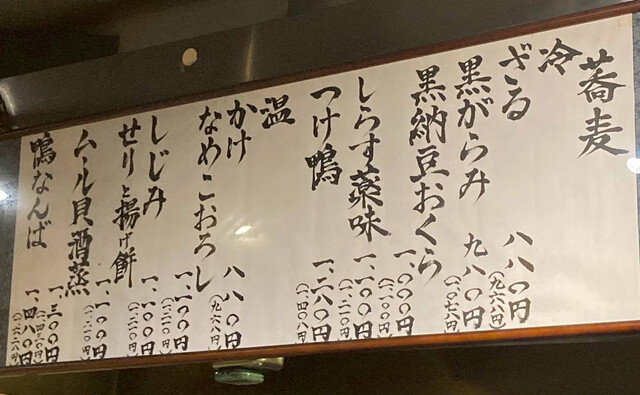 蕎麦
冷
ざる 八八〇円
(九六八円)
黒がらみ 九八〇円
黒納豆おくら 一、〇〇〇円
(一、一〇〇円)
しらす薬味 一、一〇〇円
(一、二一〇円)
つけ鴨 一、二八〇円
(一、四〇八円)
温
かけ 八八〇円
(九六八円)
なめこおろし 一、一〇〇円
(一、二一〇円)
しじみ 一、一〇〇円
(一、二一〇円)
せりと揚げ餅 一、一〇〇円
(一、二一〇円)
ムール貝酒蒸 一、三〇〇円
(一、四三〇円)
鴨なんば 一、四八〇円
(一、六二八円)